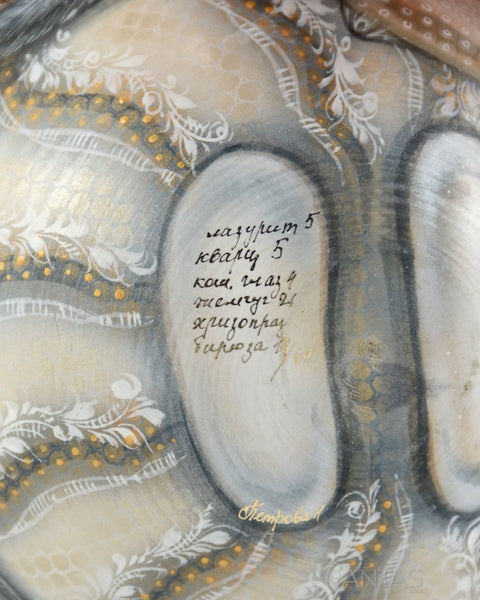 лазурит 5
кварц 5
кош. глаз 4
жемчуг
хризопраз
бирюза
Петрова